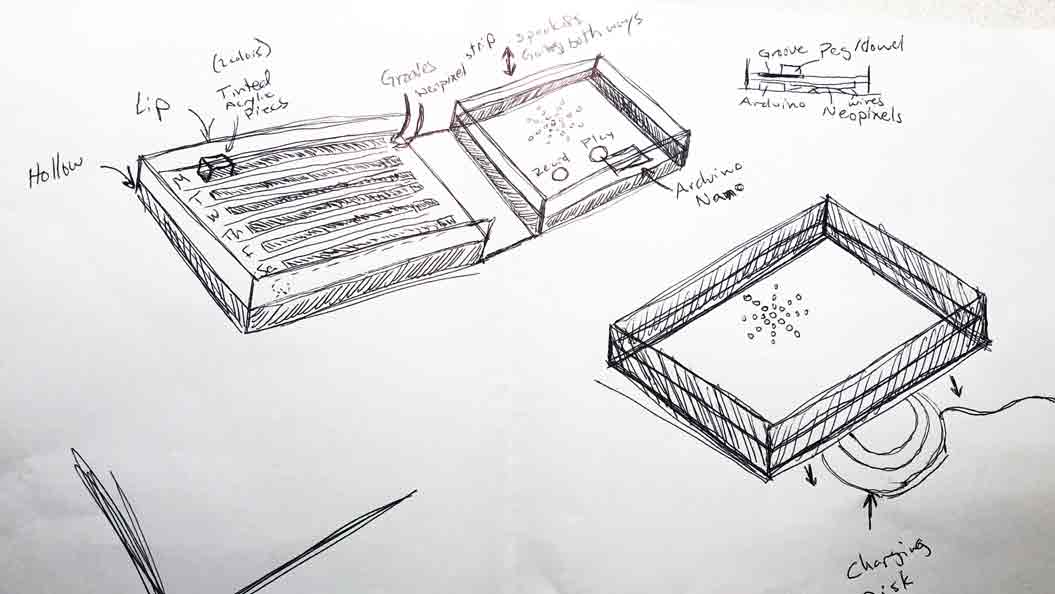 (2 colors)
Tinted
Acrylic
Pieces
Lip
Hollow
M
T
W
Th
F
Sa
Grooves
Neopixel strip
Going both ways
Play
Arduino
Nano
Groove Peg/dowel
Arduino
wires
Neopixels
Charging
Disk